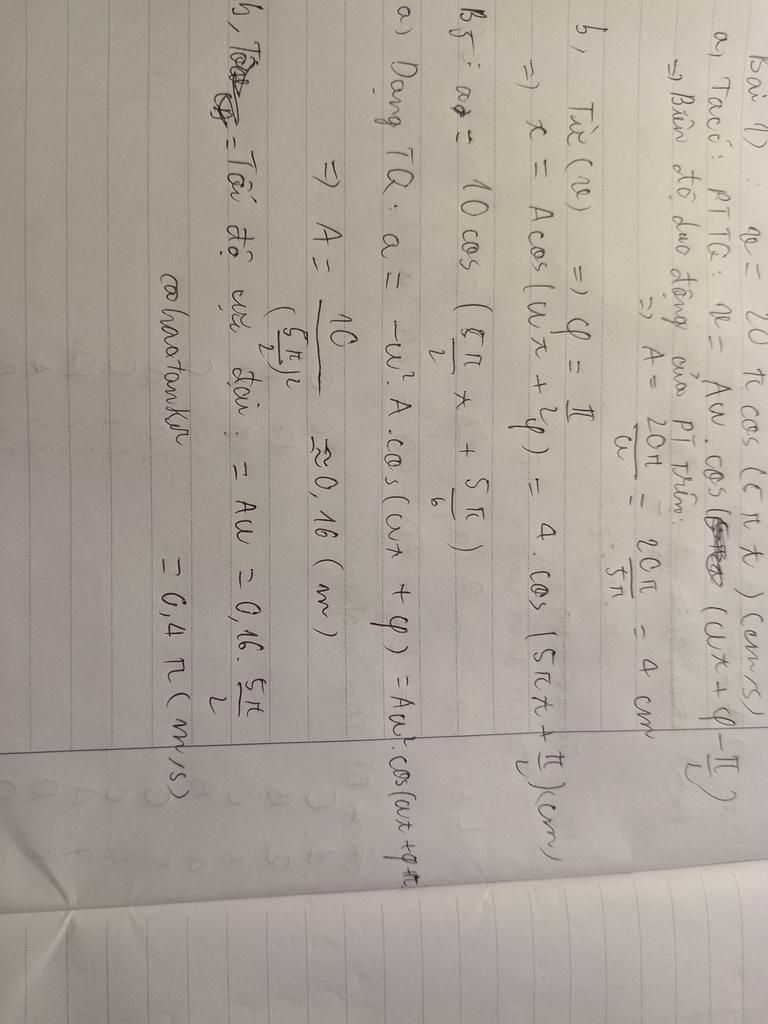 Bài 1) : v = 20 π cos (5 π t) (cm/s)
a, Ta có: PTTQ: v = Aω.cos (ωt + φ - π/2)
=> Biên độ dao động của PT trên:
=> A = 20π/ω = 20π/5π = 4 cm
b, Từ (v) => φ = π/2
=> x = Acos(ωt + φ) = 4.cos (5πt + π/2) (cm)
B5: a = 10cos (5π/2 t + 5π/6)
a) Dạng TQ: a = -ω².A.cos(ωt + φ) = Aω².cos(ωt + φ + π
=> A = 10/(5π/2)² ≈ 0,16 (m)
b, = Tốc độ cực đại: = Aω = 0,16. 5π/2
= 0,4 π (m/s)